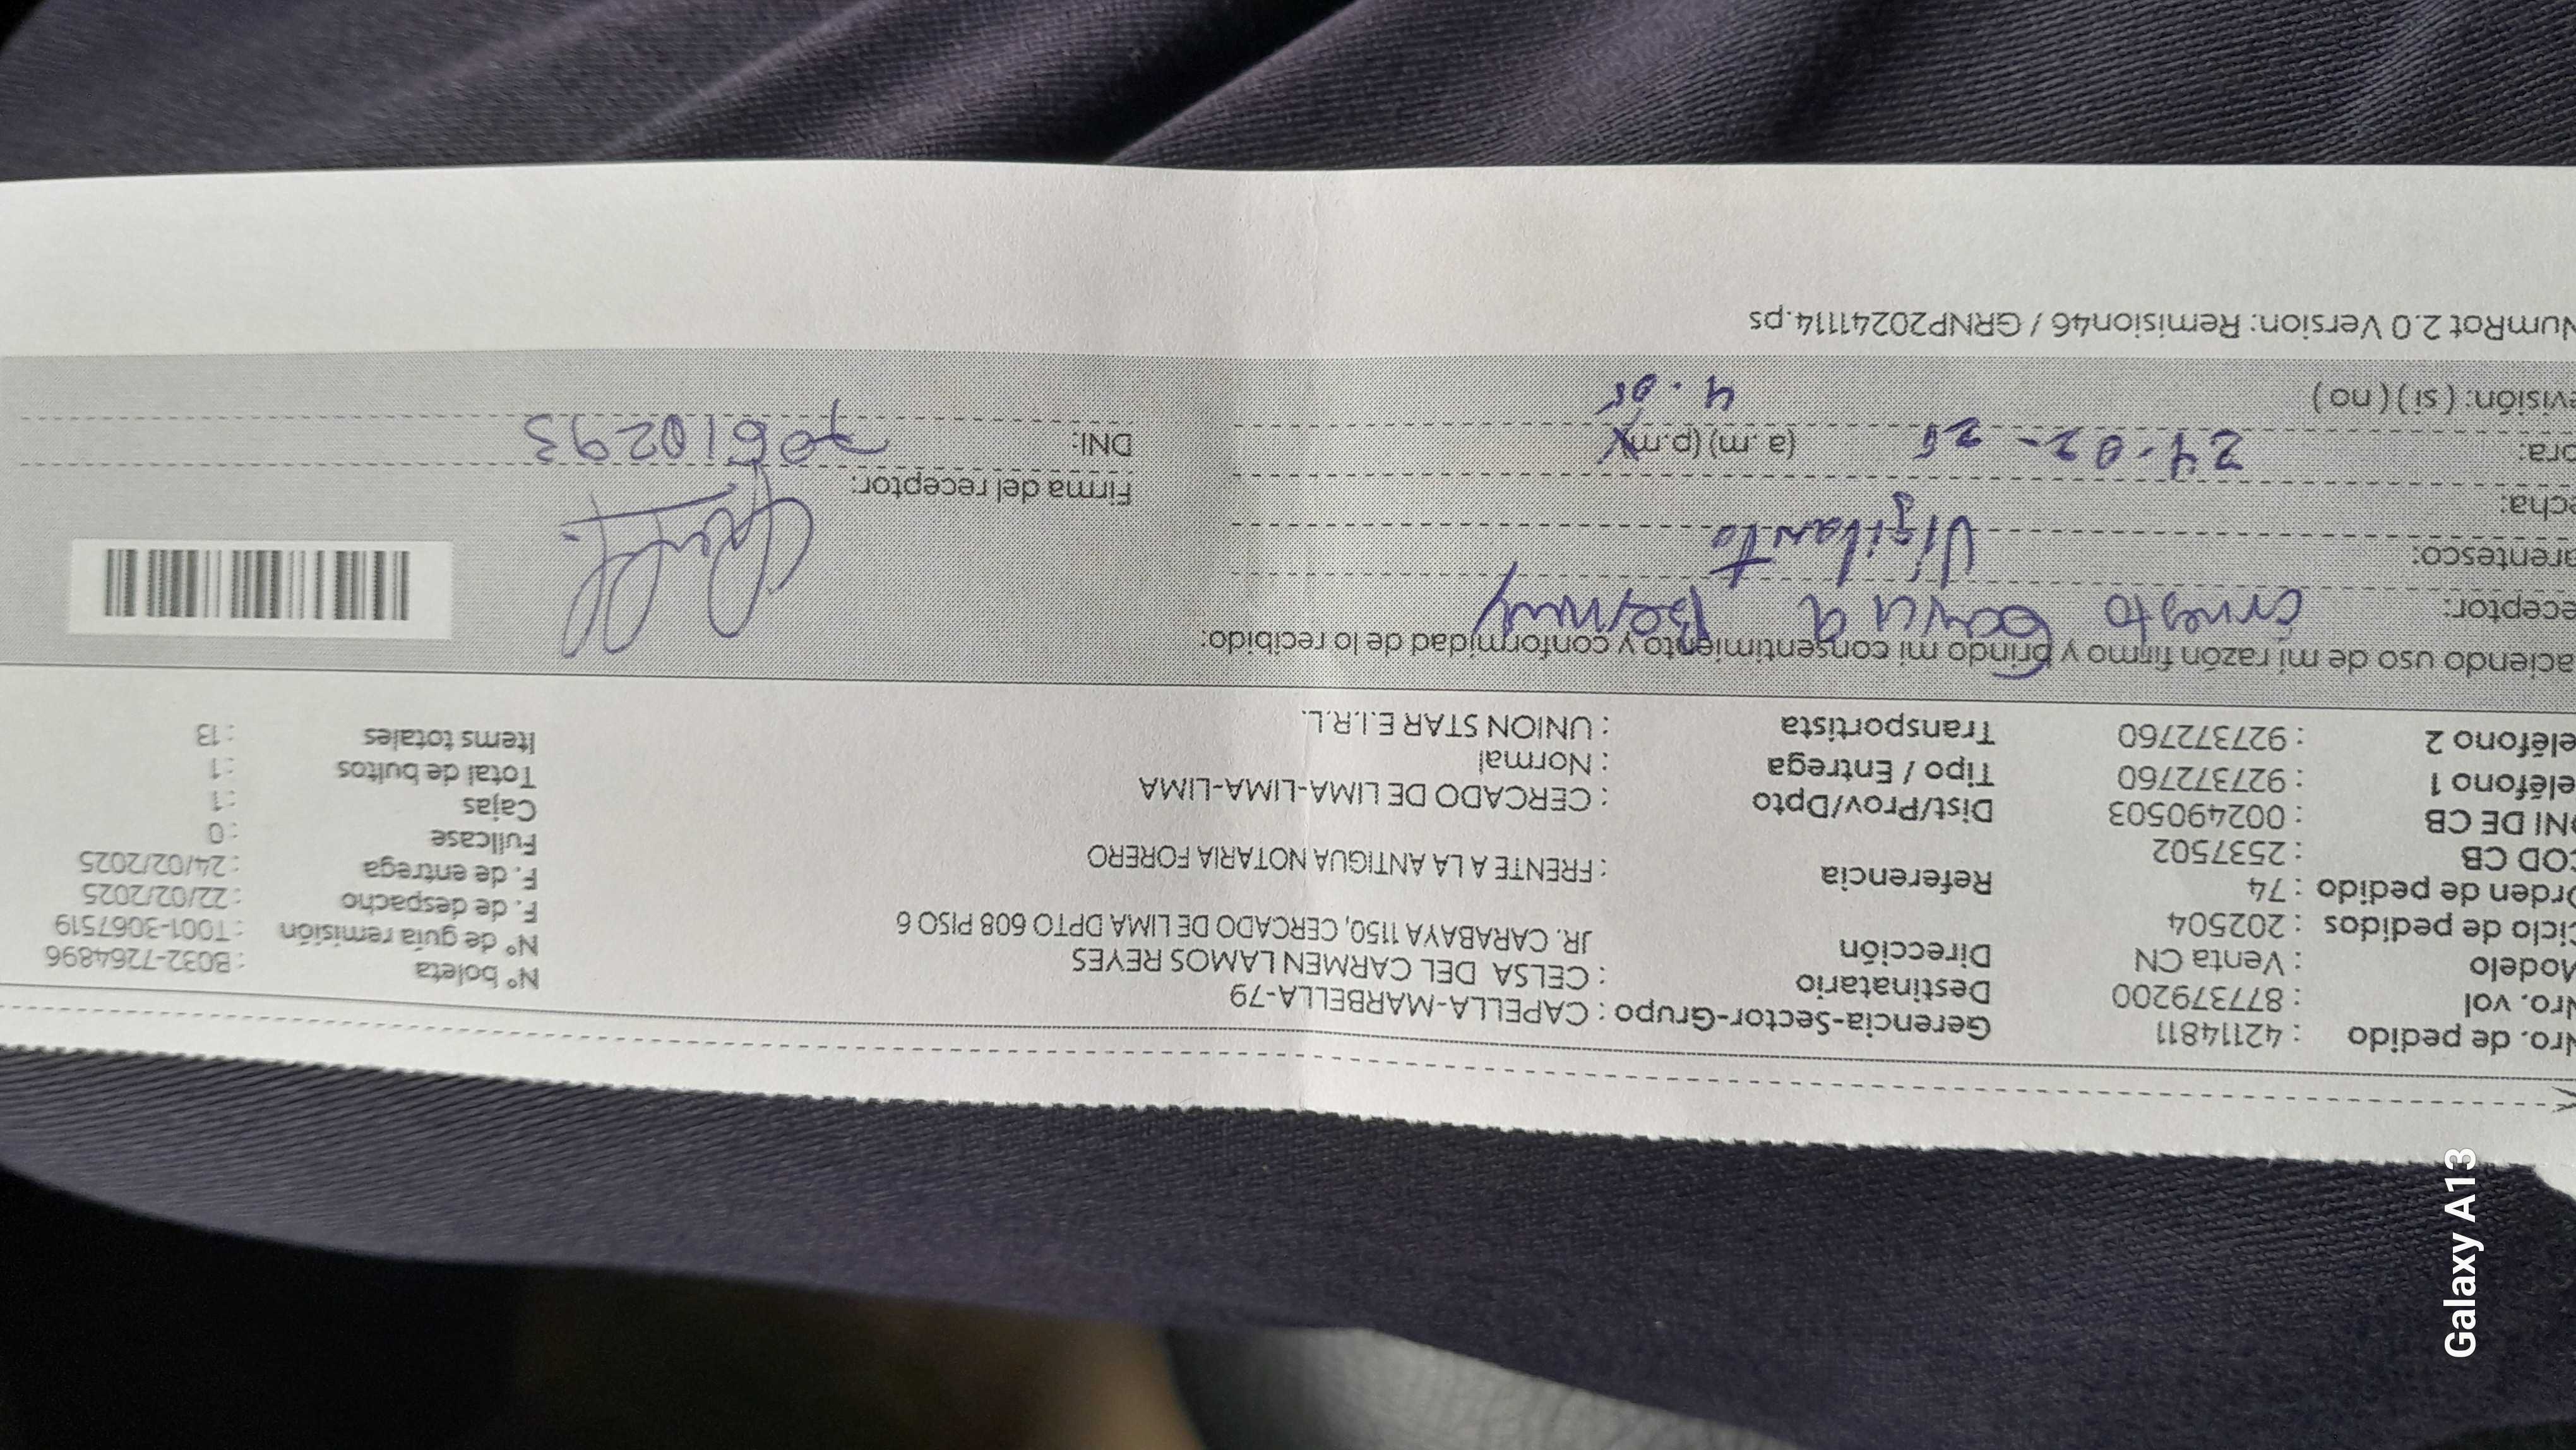 Nro. de pedido : 42114811 Gerencia-Sector-Grupo : CAPELLA-MARBELLA-79 N° boleta : B032-7264896
Nro. vol : 877379200 Destinatario : CELSA DEL CARMEN LAMOS REYES N° de guía remisión : T001-3067519
Modelo : Venta CN Dirección JR. CARABAYA 1150, CERCADO DE LIMA DPTO 608 PISO 6 F. de despacho : 22/02/2025
Ciclo de pedidos : 202504 F. de entrega : 24/02/2025
Orden de pedido : 74 Referencia : FRENTE A LA ANTIGUA NOTARIA FORERO Fullcase : 0
COD CB : 2537502 Cajas : 1
DNI DE CB : 002490503 Dist/Prov/Dpto : CERCADO DE LIMA-LIMA-LIMA Total de bultos : 1
eléfono 1 : 927372760 Tipo / Entrega : Normal Items totales : 13
eléfono 2 : 927372760 Transportista : UNION STAR E.I.R.L.
aciendo uso de mi razón firmo y brindo mi consentimiento y conformidad de lo recibido:
eceptor: ernesto Bermuy
arentesco: Vigilante
echa:
Firma del receptor:
ora: 24-02-25 (a.m) (p.m) DNI: 70610293
evisión: (si) (no) 4.05
NumRot 2.0 Version: Remision46 / GRNP20241114.ps
Galaxy A13